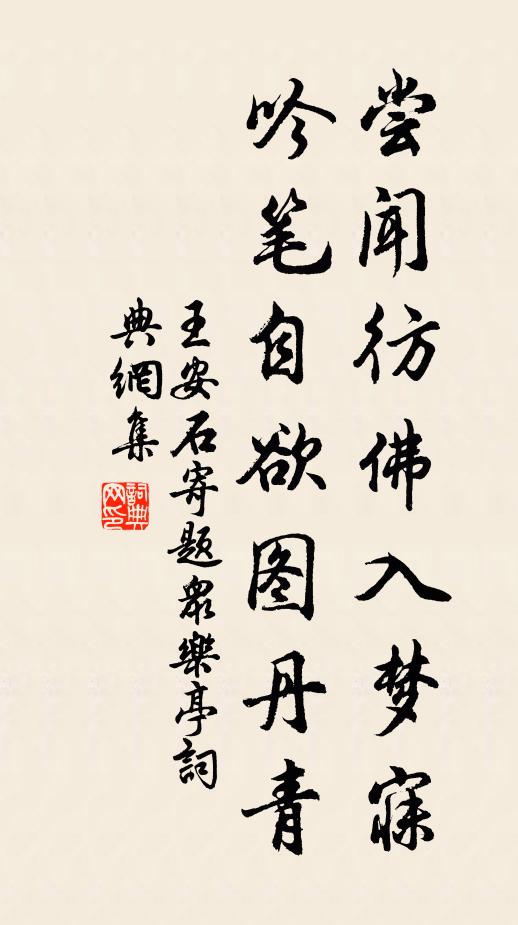 尝闻彷佛入梦寐
吟笔自欲图丹青
王安石寄题眾樂亭詞
典網集
詞典网印